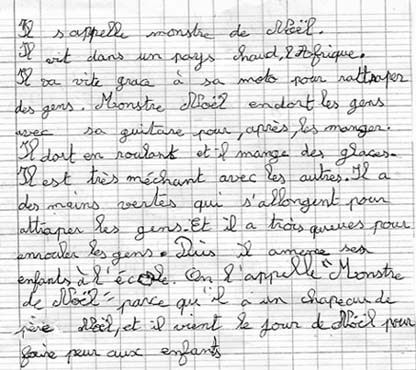 Il s'appelle monstre de Noël.
Il vit dans un pays chaud, l'Afrique.
Il va vite grace à sa moto pour rattraper
des gens. Monstre Noël endort les gens
avec sa guitare pour, après, les manger.
Il dort en roulant et il mange des glaces.
Il est très méchant avec les autres. Il a
des mains vertes qui s'allongent pour
attraper les gens. Et il a trois queues pour
enrouler les gens. Puis il amène ses
enfants à l'école. On l'appelle "Monstre
de Noël" parce qu'il a un chapeau de
père Noël, et il vient le jour de Noël pour
faire peur aux enfants